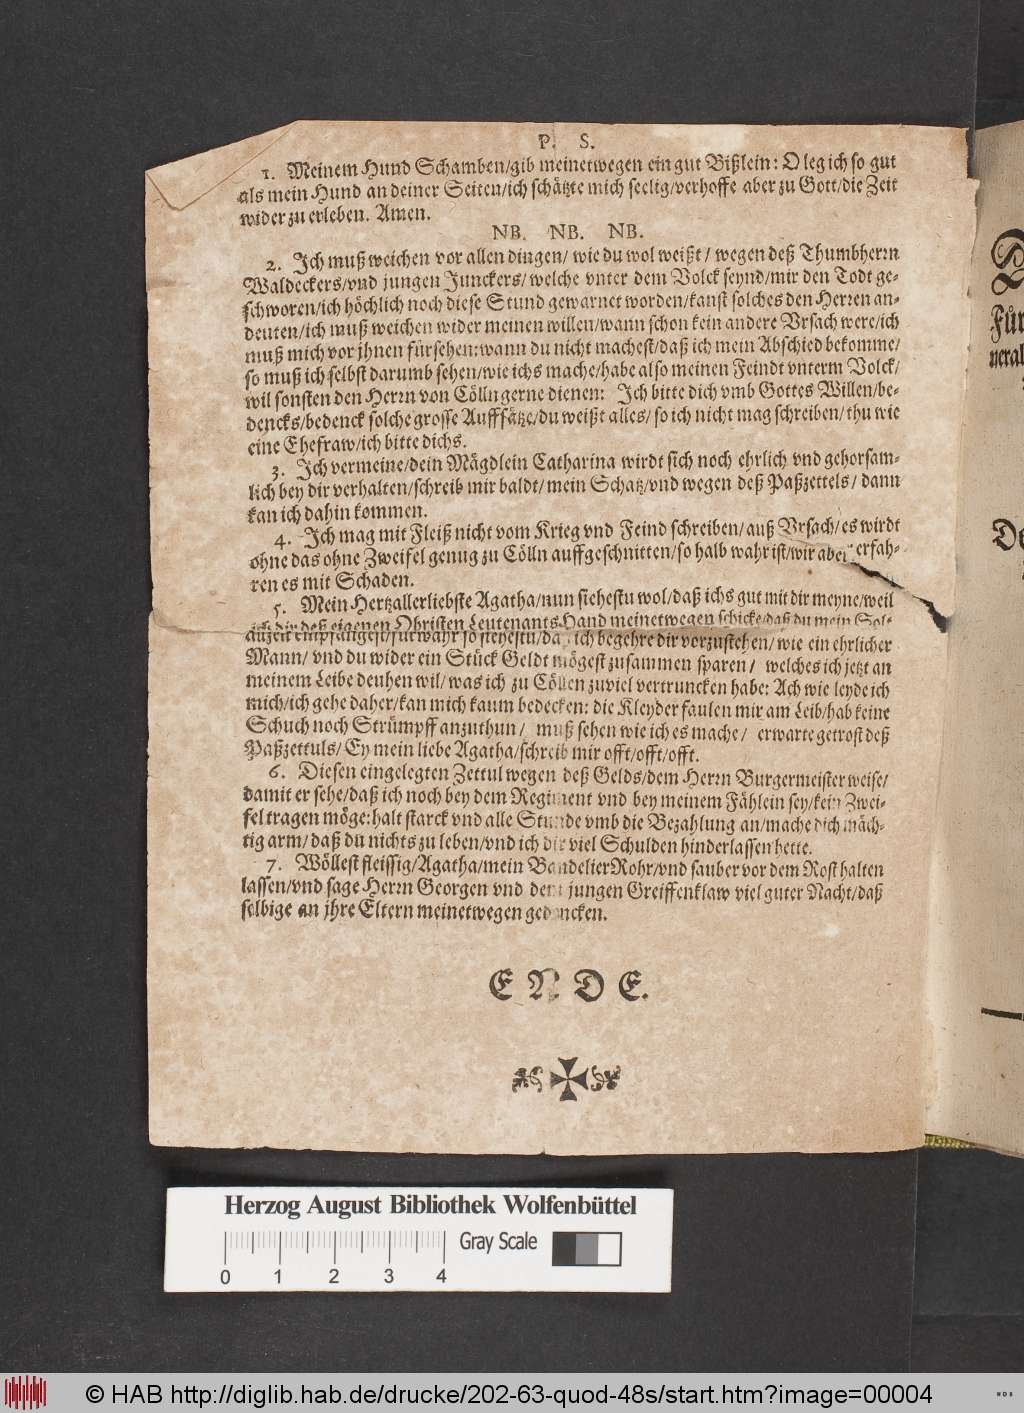 P. S.
1. Meinem Hund Schamben/gib meinetwegen ein gut Bißlein: O leg ich so gut
als mein Hund an deiner Seiten/ich schätzte mich seelig/verhoffe aber zu Gott/die Zeit
wider zu erleben. Amen.
NB. NB. NB.
2. Ich muß weichen vor allen dingen/ wie du wol weißt/ wegen deß Thumbherrn
Waldeckers/vnd jungen Junckers/ welche vnter dem Volck seynd/mir den Todt ge-
schworen/ich höchlich noch diese Stund gewarnet worden/kanst solches den Herren an-
deuten/ich muß weichen wider meinen willen/wann schon kein andere Vrsach were/ich
muß mich vor jhnen fürsehen:wann du nicht machest/daß ich mein Abschied bekomme/
so muß ich selbst darumb sehen/wie ichs mache/habe also meinen Feindt vnterm Volck/
wil sonsten den Herrn von Cölln gerne dienen: Ich bitte dich vmb Gottes Willen/be-
dencks/bedenck solche grosse Auffsätze/du weißt alles/ so ich nicht mag schreiben/ thu wie
eine Ehefraw/ich bitte dichs.
3. Ich vermeine/dein Mägdlein Catharina wirdt sich noch ehrlich vnd gehorsam-
lich bey dir verhalten/schreib mir baldt/ mein Schatz/vnd wegen deß Paßzettels/ dann
kan ich dahin kommen.
4. Ich mag mit Fleiß nicht vom Krieg vnd Feind schreiben/ auß Vrsach/es wirdt
ohne das ohne Zweifel genug zu Cölln auffgeschnitten/so halb wahr ist/wir aber erfah-
ren es mit Schaden.
5. Mein Hertzallerliebste Agatha/nun siehestu wol/daß ichs gut mit dir meyne/weil
ich dir deß eigenen Obristen Leutenants Hand meinetwegen schicke/daß du mein Sol-
auzeit empfangest/fürwahr so siehestu/da ich begehre dir vorzustehen/ wie ein ehrlicher
Mann/ vnd du wider ein Stück Geldt mögest zusammen sparen/ welches ich jetzt an
meinem Leibe deuhen wil/ was ich zu Cöllen zuviel vertruncken habe: Ach wie leyde ich
mich/ich gehe daher/kan mich kaum bedecken: die Kleyder faulen mir am Leib/hab keine
Schuch noch Strümpff anzuthun/ muß sehen wie ich es mache/ erwarte getrost deß
Paßzettuls/ Ey mein liebe Agatha/schreib mir offt/offt/offt.
6. Diesen eingelegten Zettul wegen deß Gelds/dem Herrn Burgermeister weise/
damit er sehe/daß ich noch bey dem Regiment vnd bey meinem Fählein sey/kein Zwei-
fel tragen möge:halt starck vnd alle Stunde vmb die Bezahlung an/mache dich mäch-
tig arm/ daß du nichts zu leben/vnd ich dir viel Schulden hinderlassen hette.
7. Wöllest fleissig/Agatha/mein BandelierRohr/vnd sauber vor dem Rost halten
lassen/vnd sage Herrn Georgen vnd dem jungen Greiffenklaw viel guter Nacht/daß
selbige an jhre Eltern meinetwegen gedencken.
E N D E.
Herzog August Bibliothek Wolfenbüttel
Gray Scale
0 1 2 3 4
© HAB http://diglib.hab.de/drucke/202-63-quod-48s/start.htm?image=00004